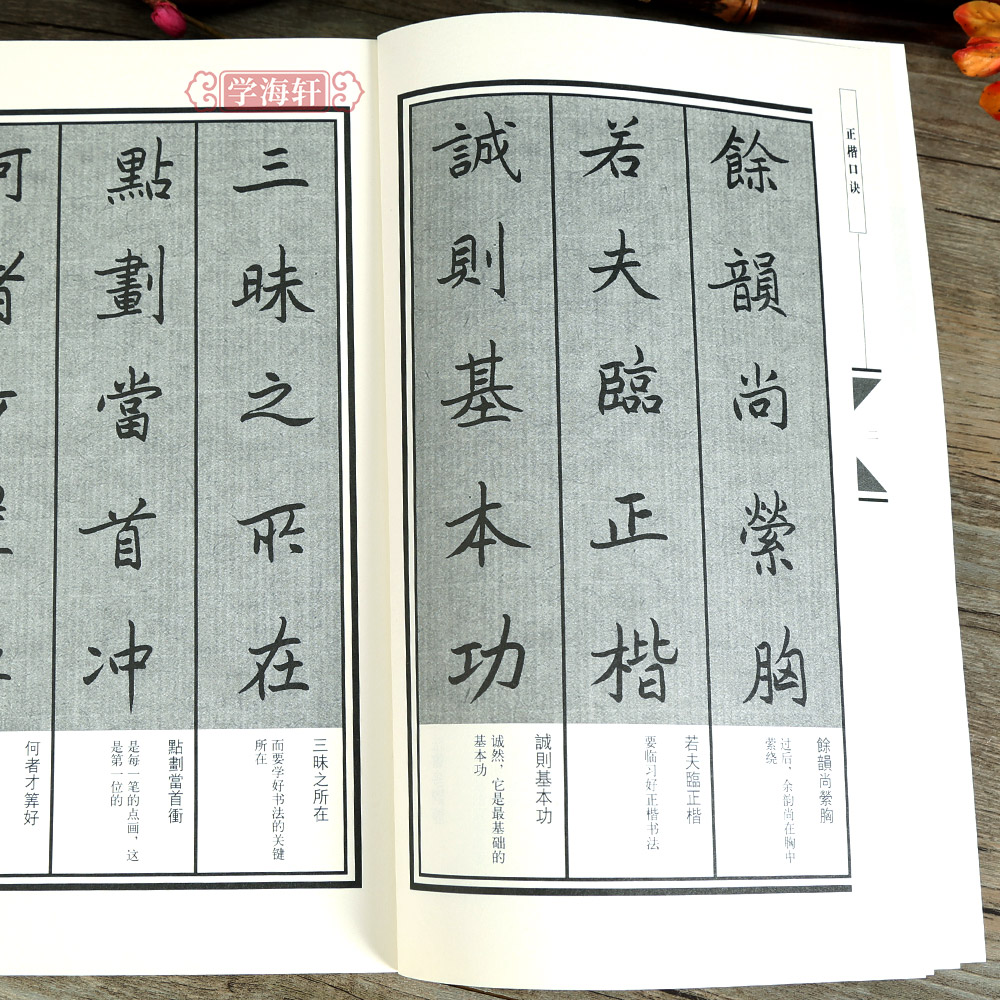 学海轩
正楷口诀
二
餘韻尚縈胸
餘韻尚縈胸
过后，余韵尚在胸中
萦绕
若夫臨正楷
若夫臨正楷
要临习好正楷书法
誠則基本功
誠則基本功
诚然，它是最基础的
基本功
三昧之所在
三昧之所在
而要学好书法的关键
所在
點劃當首冲
點劃當首衝
是每一笔的点画，这
是第一位的
何者
何者才筭好